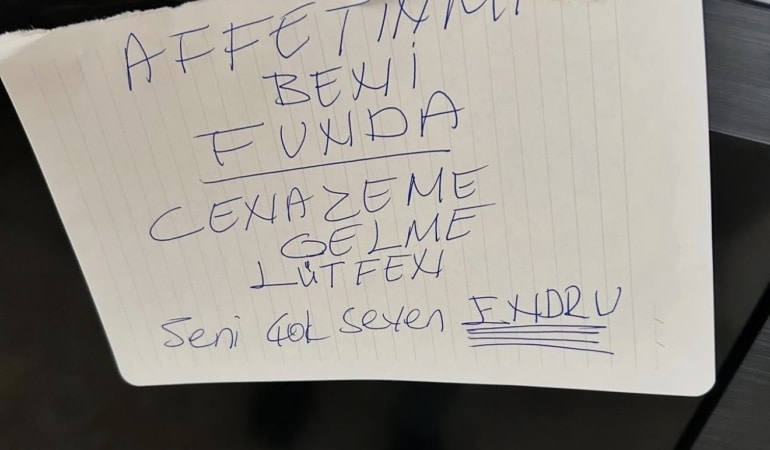 AFFETİNMİ
BENİ
FUNDA
CENAZEME
GELME
LÜTFEN
Seni çok seven ENDRU